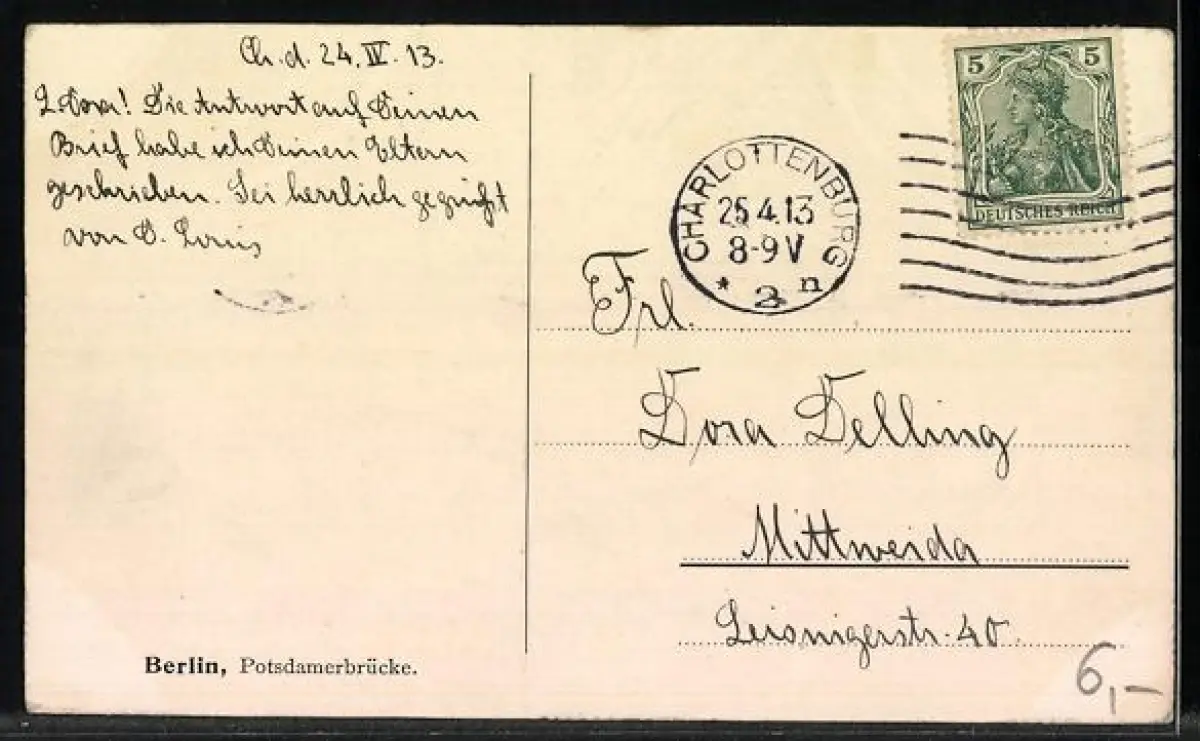 Ch. d. 24. IV. 13.
L. Dora! Die Antwort auf Deinen
Brief habe ich Deinen Eltern
geschrieben. Sei herzlich gegrüßt
von D. Louis
5 5
DEUTSCHES REICH
CHARLOTTENBURG
25.4.13
8-9 V
* 2 n
Frl.
Dora Delling
Mittweida
Leisnigerstr. 40.
Berlin, Potsdamerbrücke.
6,-